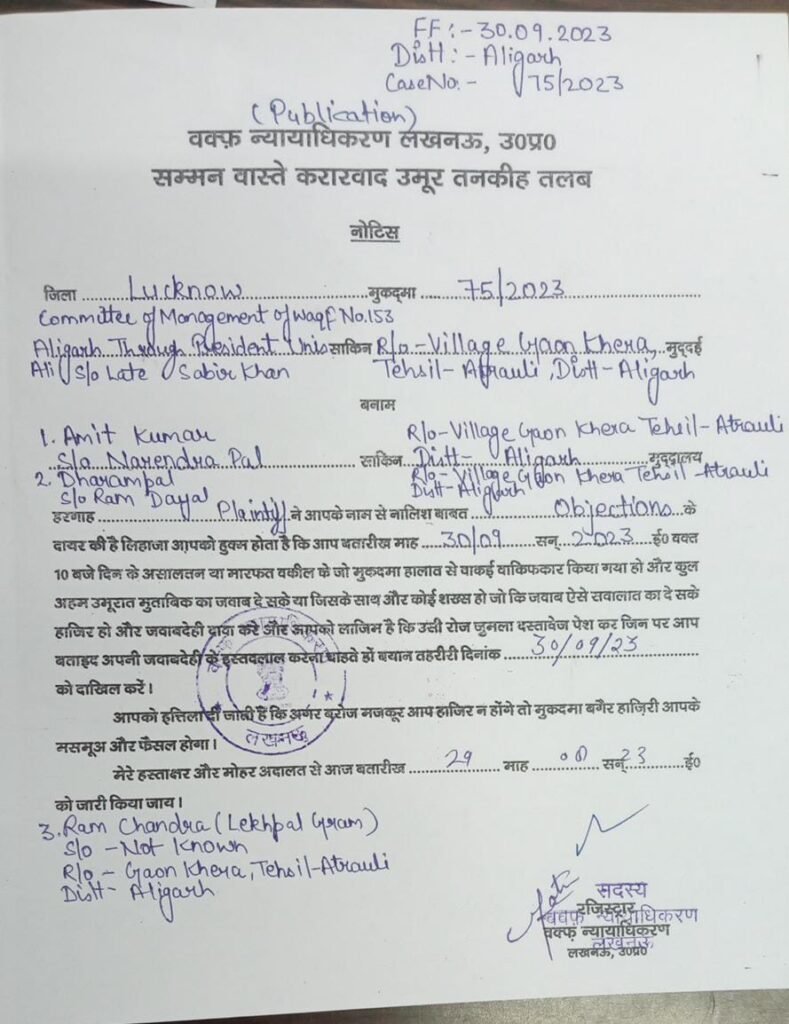 FF:- 30.09.2023
Distt:- Aligarh
Case No.- 75/2023
(Publication)
वक्फ़ न्यायाधिकरण लखनऊ, उ0प्र0
सम्मन वास्ते करारवाद उमूर तनकीह तलब
नोटिस
जिला ........Lucknow........मुकद्मा .....75/2023........
Committee of Management of Waqf No.153
Aligarh Through President Unis साकिन R/o-Village Gaon Khera, मुद्दई
Ali S/o Late Sabir Khan Tehsil- Atrauli, Distt- Aligarh
बनाम
1. Amit Kumar R/o-Village Gaon Khera Tehsil-Atrauli
S/o Narendra Pal ........ साकिन Distt- Aligarh ........मुद्दालय
2. Dharampal R/o-Village Gaon Khera Tehsil-Atrauli
S/o Ram Dayal Distt-Aligarh
हरगाह ........Plaintiff ने आपके नाम से नालिश बाबत ........Objections के
दायर की है लिहाजा आपको हुक्म होता है कि आप बतारीख माह ....30/09.... सन् .2023....ई0 वक्त
10 बजे दिन के असालतन या मारफत वकील के जो मुकदमा हालात से वाकई वाकिफकार किया गया हो और कुल
अहम उमूरात मुताबिक का जवाब दे सके या जिसके साथ और कोई शख्स हो जो कि जवाब ऐसे सवालात का दे सके
हाजिर हो और जवाबदेही दावा करे और आपको लाजिम है कि उसी रोज जुमला दस्तावेज पेश कर जिन पर आप
बताइद अपनी जवाबदेही के इस्तदलाल करना चाहते हों बयान तहरीरी दिनांक ....30/09/23....
को दाखिल करें।
आपको इत्तिला दी जाती है कि अगर बरोज मजकूर आप हाजिर न होंगे तो मुकदमा बगैर हाज़िरी आपके
मसमूअ और फैसल होगा।
मेरे हस्ताक्षर और मोहर अदालत से आज बतारीख ........29........ माह .... सन् 23 ....ई0
को जारी किया जाय।
3. Ram Chandra (Lekhpal Gram)
S/o - Not Known
R/o - Gaon Khera, Tehsil-Atrauli
Distt- Aligarh
लखनऊ
सदस्य
रजिस्ट्रार
वक्फ़ न्यायाधिकरण
वक्फ़ न्यायाधिकरण
लखनऊ
लखनऊ, उ0प्र0